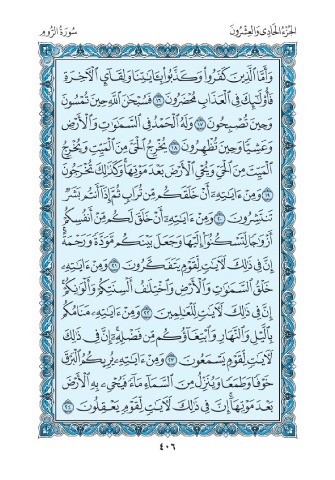 الجزء الحادي والعشرون
سورة الروم
وَأَمَّا ٱلَّذِينَ كَفَرُوا۟ وَكَذَّبُوا۟ بِـَٔايَـٰتِنَا وَلِقَآئِ ٱلْـَٔاخِرَةِ
فَأُو۟لَـٰٓئِكَ فِى ٱلْعَذَابِ مُحْضَرُونَ ١٦ فَسُبْحَـٰنَ ٱللَّهِ حِينَ تُمْسُونَ
وَحِينَ تُصْبِحُونَ ١٧ وَلَهُ ٱلْحَمْدُ فِى ٱلسَّمَـٰوَٰتِ وَٱلْأَرْضِ
وَعَشِيًّا وَحِينَ تُظْهِرُونَ ١٨ يُخْرِجُ ٱلْحَىَّ مِنَ ٱلْمَيِّتِ وَيُخْرِجُ
ٱلْمَيِّتَ مِنَ ٱلْحَىِّ وَيُحْىِ ٱلْأَرْضَ بَعْدَ مَوْتِهَا وَكَذَٰلِكَ تُخْرَجُونَ
١٩ وَمِنْ ءَايَـٰتِهِۦٓ أَنْ خَلَقَكُم مِّن تُرَابٍ ثُمَّ إِذَآ أَنتُم بَشَرٌ
تَنتَشِرُونَ ٢٠ وَمِنْ ءَايَـٰتِهِۦٓ أَنْ خَلَقَ لَكُم مِّنْ أَنفُسِكُمْ
أَزْوَٰجًا لِّتَسْكُنُوٓا۟ إِلَيْهَا وَجَعَلَ بَيْنَكُم مَّوَدَّةً وَرَحْمَةً
إِنَّ فِى ذَٰلِكَ لَـَٔايَـٰتٍ لِّقَوْمٍ يَتَفَكَّرُونَ ٢١ وَمِنْ ءَايَـٰتِهِۦ
خَلْقُ ٱلسَّمَـٰوَٰتِ وَٱلْأَرْضِ وَٱخْتِلَـٰفُ أَلْسِنَتِكُمْ وَأَلْوَٰنِكُمْ
إِنَّ فِى ذَٰلِكَ لَـَٔايَـٰتٍ لِّلْعَـٰلِمِينَ ٢٢ وَمِنْ ءَايَـٰتِهِۦ مَنَامُكُم
بِٱلَّيْلِ وَٱلنَّهَارِ وَٱبْتِغَآؤُكُم مِّن فَضْلِهِۦٓ إِنَّ فِى ذَٰلِكَ
لَـَٔايَـٰتٍ لِّقَوْمٍ يَسْمَعُونَ ٢٣ وَمِنْ ءَايَـٰتِهِۦ يُرِيكُمُ ٱلْبَرْقَ
خَوْفًا وَطَمَعًا وَيُنَزِّلُ مِنَ ٱلسَّمَآءِ مَآءً فَيُحْىِۦ بِهِ ٱلْأَرْضَ
بَعْدَ مَوْتِهَآ إِنَّ فِى ذَٰلِكَ لَـَٔايَـٰتٍ لِّقَوْمٍ يَعْقِلُونَ ٢٤
٤٠٦